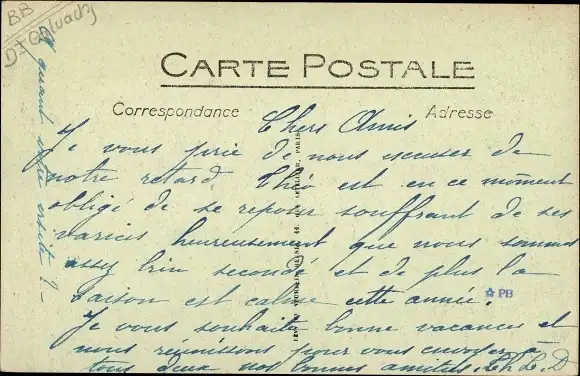 BB
CARTE POSTALE
Correspondance
Adresse
Chers Amis
Je vous prie de nous excuser de
notre retard Théo est en ce moment
obligé de se reposer souffrant de ses
varices heureusement que nous sommes
assy bien secondé et de plus la
saison est calme cette année.
PB
Je vous souhaite bonne vacances et
nous réunissons pour vous envoyer à
tous deux nos bonnes amitiés. Th. L. D
A quand votre visite ?